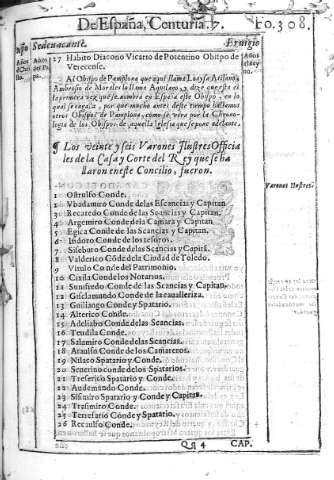 De España, Centuria. 7.
Fo. 308.
Sedeuacante.
Eruigio
27 Habito Diacono Vicario de Potentino Obispo de
Vtrecense.
Al Obispo de Pamplona que aqui llama Loaysa Atilano,
Ambrosio de Morales le llama Aquilano, y dize que es esta
la primera vez que se nombra en España este Obispo, en lo
qual se engaña, por que mucho antes deste tiempo hallamos
otros Obispos de Pamplona, como se vera por la Chronologia
de los Obispos de aquella Iglesia que se pone adelante.
¶ Los veinte y seis Varones Ilustres Officiales
de la Casa y Corte del Rey que se hallaron
en este Concilio, fueron.
Varones Ilustres.
1 Ostrulfo Conde.
2 Vbadamiro Conde de las Escancias y Capitan.
3 Recaredo Conde de las Scancias y Capitan.
4 Argemiro Conde de la Camara y Capitan.
5 Egica Conde de las Scancias y Capitan.
6 Isidoro Conde de los tesoros.
7 Sisebuto Conde de las Scancias y Capitã.
8 Valderico Cõde de la Ciudad de Toledo.
9 Vitulo Conde del Patrimonio.
10 Cixila Conde de los Notarios.
11 Sunifredo Conde de las Scancias y Capitan.
12 Gisclamundo Conde de la caualleriza.
13 Guiliango Conde y Spatario.
14 Alterico Conde.
15 Adeliubo Conde de las Scancias.
16 Teudila Conde.
17 Salamiro Conde de las Scancias.
18 Ataulfo Conde de los Camareros.
19 Nilaco Spatario y Conde.
20 Seuerino conde de los Spatarios.
21 Treserico Spatario y Conde.
22 Audemundo Conde.
23 Sisimiro Spatario y Conde y Capitan.
24 Trasimiro Conde.
25 Terresario Conde y Spatario.
26 Recaulfo Conde.
Qq 4
CAP.